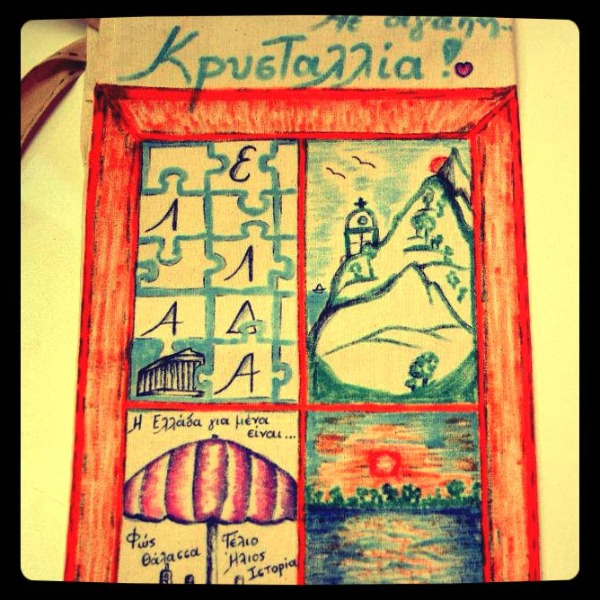 Με αγάπη..
Κρυσταλλία!
Ε
Λ
Λ
Α Δ
Α
Η Ελλάδα για μένα
είναι...
Φώς Γέλιο
Θάλασσα Ήλιος
Ιστορία